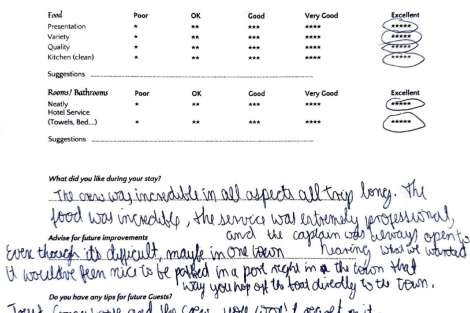 Food Poor OK Good Very Good Excellent
Presentation * ** *** **** *****
Variety * ** *** **** *****
Quality * ** *** **** *****
Kitchen (clean) * ** *** **** *****
Suggestions
Rooms/ Bathrooms Poor OK Good Very Good Excellent
Neatly * ** *** **** *****
Hotel Service
(Towels, Bed...) * ** *** **** *****
Suggestions
What did you like during your stay?
The crew was incredible in all aspects all trip long. The
food was incredible, the service was extremely professional,
and the captain was always open to
hearing what we wanted
Advise for future improvements
Even though it's difficult, maybe in one town
it would've been nice to be parked in a port right in the town that
way you hop off the boat directly to the town.
Do you have any tips for future Guests?
Trust and the crew, you won't regret it.